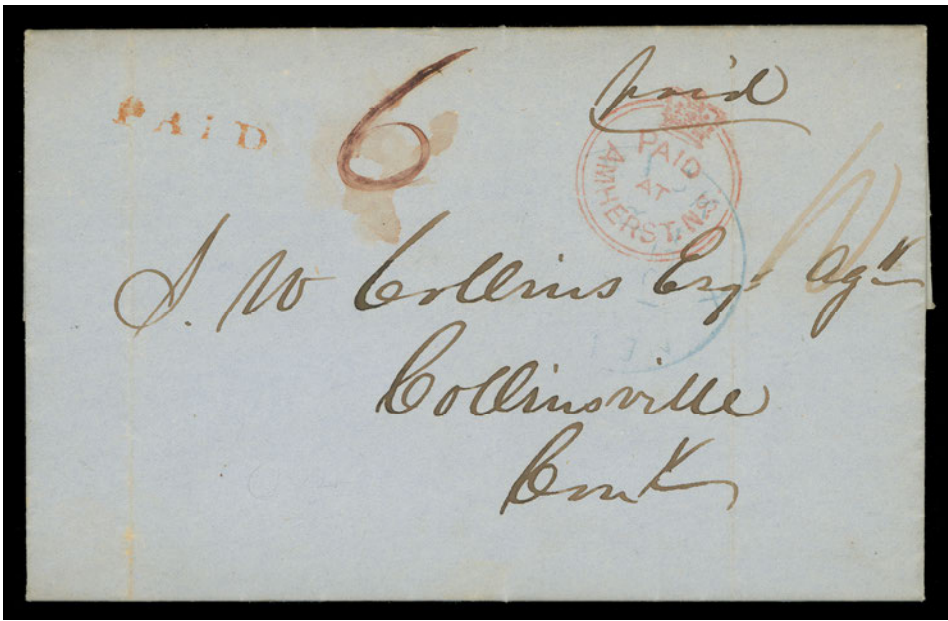 PAID
6
paid
PAID
AT
AMHERST, N.S
S. W Collins Esqr Agt
Collinsville
Cont